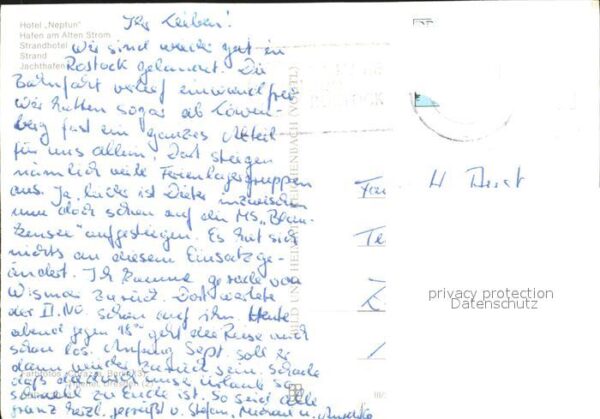 Hotel „Neptun“
Hafen am Alten Strom
Strandhotel
Strand
Jachthafen
Ihr Lieben!
Wir sind wieder gut in
Rostock gelandet. Die
Bahnfahrt verlief einwandfrei
Wir hatten sogar ab Löwen-
berg fast ein ganzes Abteil
für uns allein. Dort steigen
nämlich viele Ferienlagergruppen
aus. Ja, leider ist Dieter inzwischen
nun doch schon auf die MS „Blan-
kensee“ aufgestiegen. Es hat sich
nichts an diesem Einsatz ge-
ändert. Ich komme gerade von
Wismar zurück. Dort wartete
der II. NO schon auf ihn. Heute
abend gegen 18⁰⁰ geht die Reise auch
schon los. Anfang Sept. soll er
dann wieder zurück sein. Schade
daß dieser unser Urlaub so
schnell zu Ende ist. So seid alle
ganz herzl. gegrüßt v. Stefan, u.
ROSTOCK
BILD UND HEIMAT REICHENBACH (VOGTL)
Fam. H
privacy protection
Datenschutz